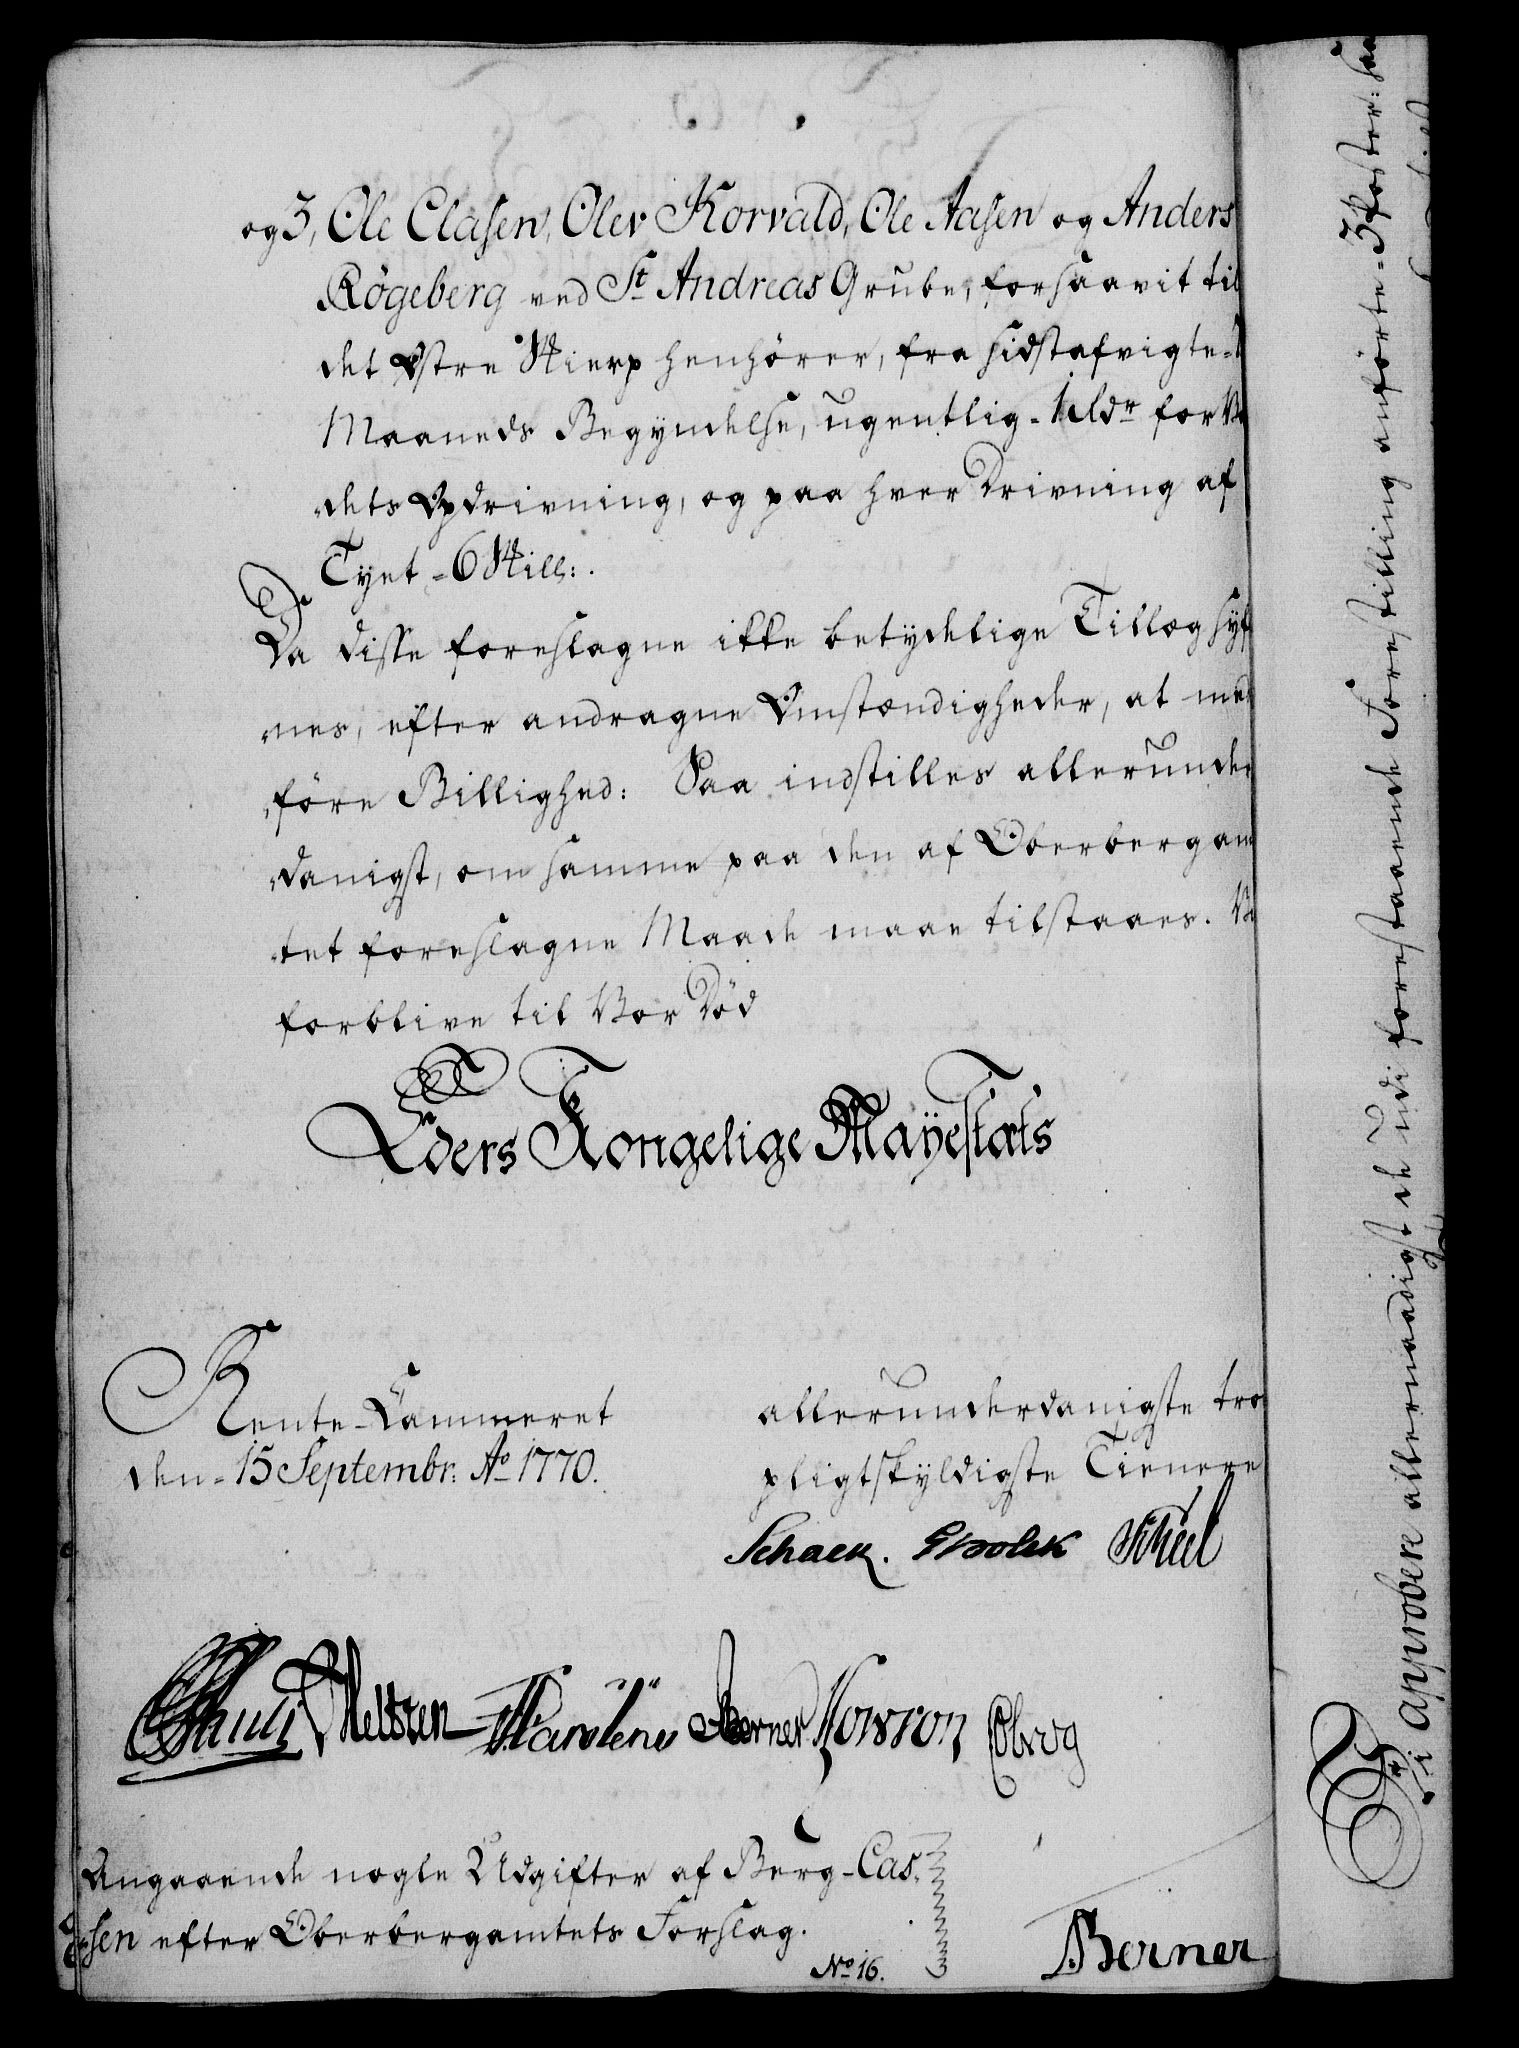 og 3, Ole Clasen, Olev Korvald, Ole Aasen og Anders
Rögeberg ved St Andreas Grube, forsaavit til
det Østre Skierp henhörer, fra sidstafvigte
Maaneds Begyndelse, ugentlig - 1 rldr for
dets Opdrivning, og paa hver Drivning af
Tynt - 6 Skill: .
Da disse foreslagne ikke betydelige Tillæg syn
nes, efter andragne Omstændigheder, at med
före Billighed: Saa indstilles allerunder
danigst, om samme paa den af Oberbergam
tet foreslagne Maade maae tilstaaes. Vi
forblive til Vor Död
Eders Kongelige Mayestæts
Rente-Cammeret
den - 15 Septembr: Ao 1770.
allerunderdanigste tro
pligtskyldigste Tienere
Schack. Scheel
Berner
Angaaende nogle Udgifter af Berg-Cas
sen efter Oberbergamtets Forslag.
No 16.
Berner
Vi Approbere allernaadigst de udi forestaaende Forestilling anförte - 3 Poster: saa